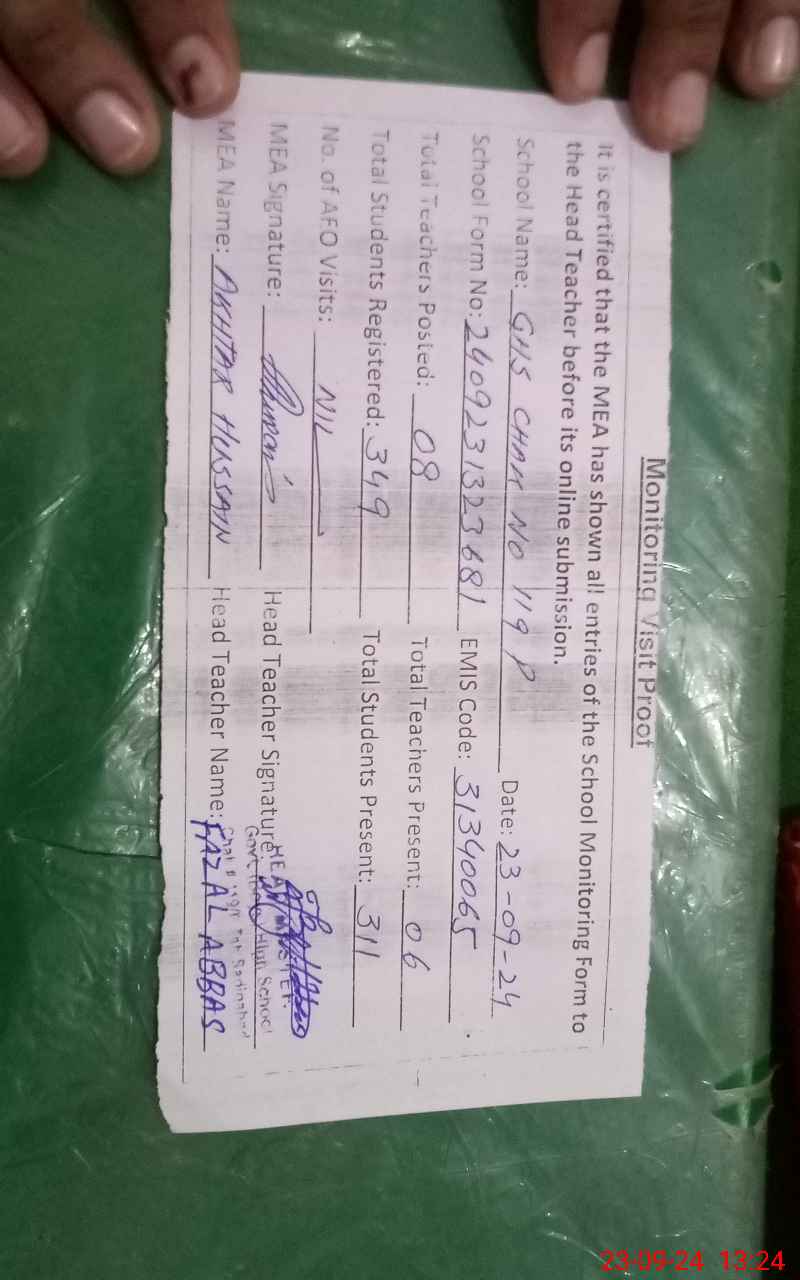 Monitoring Visit Proof
It is certified that the MEA has shown all entries of the School Monitoring Form to
the Head Teacher before its online submission.
School Name: GHS CHAK NO 119 P Date: 23-09-24
School Form No: 2409231323681 EMIS Code: 31340065
Total Teachers Posted: 08 Total Teachers Present: 06
Total Students Registered: 349 Total Students Present: 311
No. of AEO Visits: NIL
MEA Signature: Head Teacher Signature:
Govt. High School
MEA Name: AKHTAR HUSSAIN Head Teacher Name: FAZAL ABBAS
23-09-24 13:24